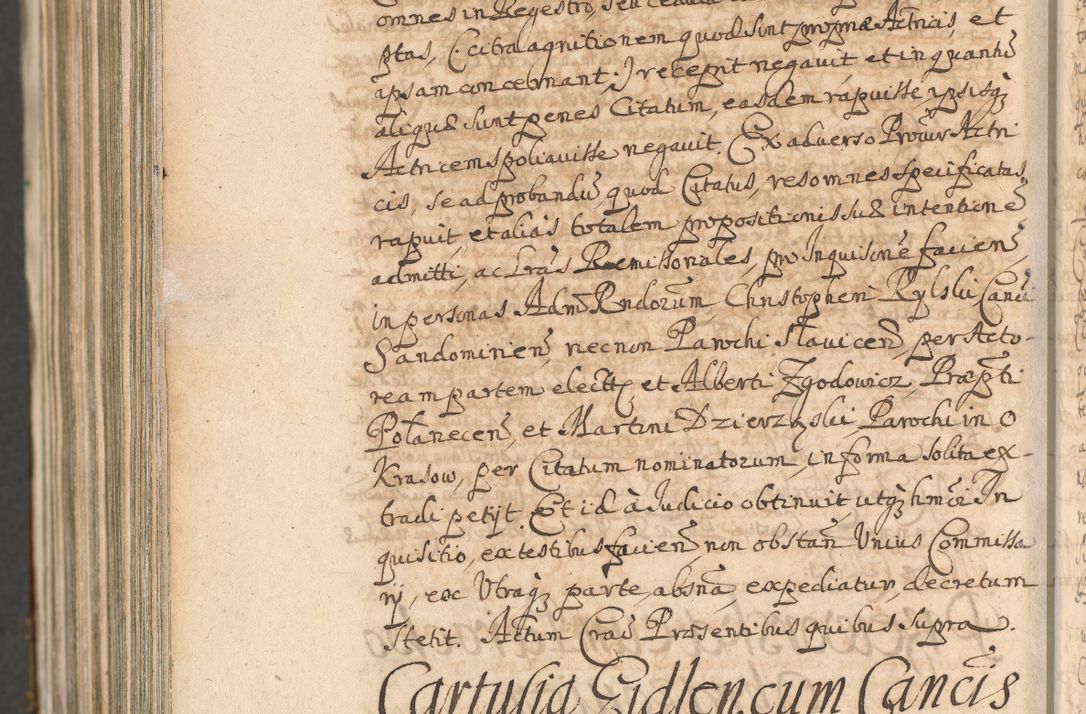 omnes in Regestro, seu
ptas, Citra agnitionem quod sint propriæ Actricis, et
ipsam concernant, I recepit negavit et in quantũ
aliquæ sunt penes Citatum, easdem rapuisse, ipsisq;
Actricem spoliavisse negavit. Ex adverso Procur Actri
cis, se ad probandũ, quod Citatus, res omnes specificatas
rapuit, et alias totalem propositionis suæ intentionẽ
admitti, ac Lrãs Remissoriales, pro Inquisicnẽ facien̄
in personas Adm Rndorum, Christopheri Rylski Canci
Sandomirien̄, necnon Parochi Slavicen̄, per Acto-
ream partem elect, et Alberti Zgodowicz, Præpti
Połanecen̄, et Martini Dzierzski Parochi in O
Krasow, per Citatum nominatorum, in forma solita ex-
tradi petijt. Et id à Judicio obtinuit, utq; hmõi In
quisitio, ex testibus facien̄ non obstañ Unius Commissa
rij, ex Utraq; parte, absña, expediatur, decretum
stetit. Actum Crac̄ Præsentibus quibus supra.
Cartusia Gidlen, cum Cancis